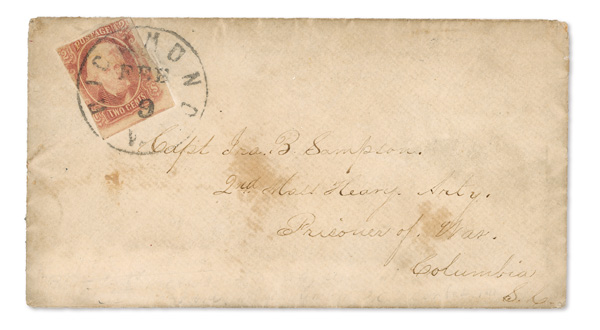 POSTAGE
2 2
TWO CENTS
RICHMOND
FEB
9
VA
Capt Jas. B. Sampson.
2nd Mass Heavy Arty.
Prisoner of War.
Columbia
S.C.